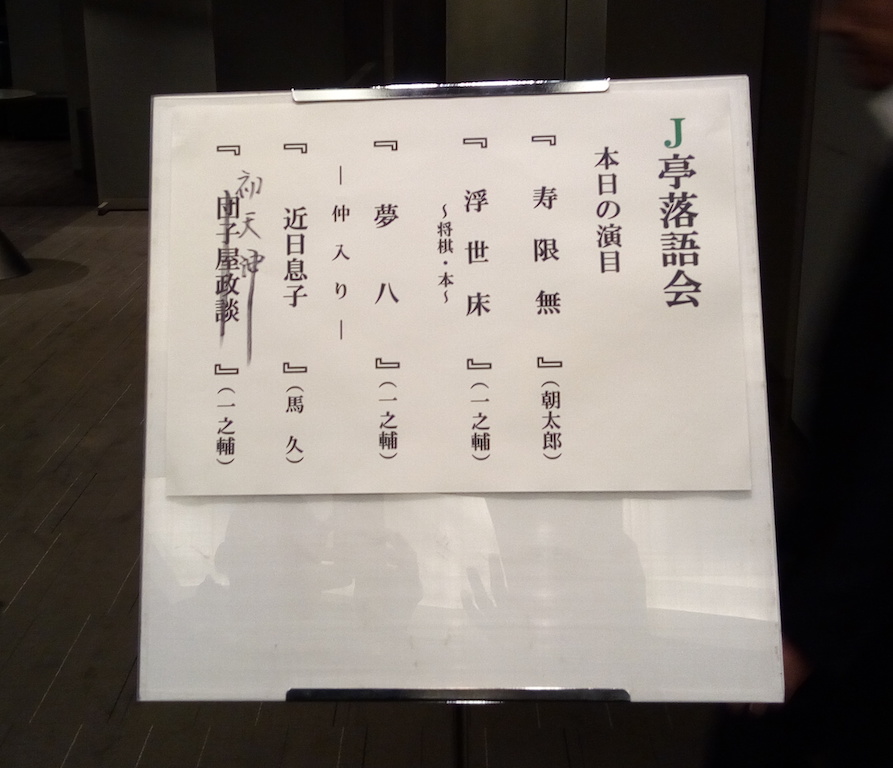 J亭落語会
本日の演目
『寿限無』（朝太郎）
『浮世床』（一之輔）
～将棋・本～
『夢八』（一之輔）
―仲入り―
『近日息子』（馬久）
初天神
『団子屋政談』（一之輔）